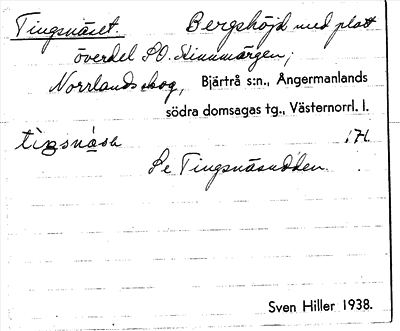 Tingsnäset. Bergshöjd med platt
överdel SO. Kinnmärgen;
Norrlandsskog, Bjärtrå s:n., Ångermanlands
södra domsagas tg., Västernorrl. l.
tiŋsnäsə 174
Se Tingsnäsudden.
Sven Hiller 1938.